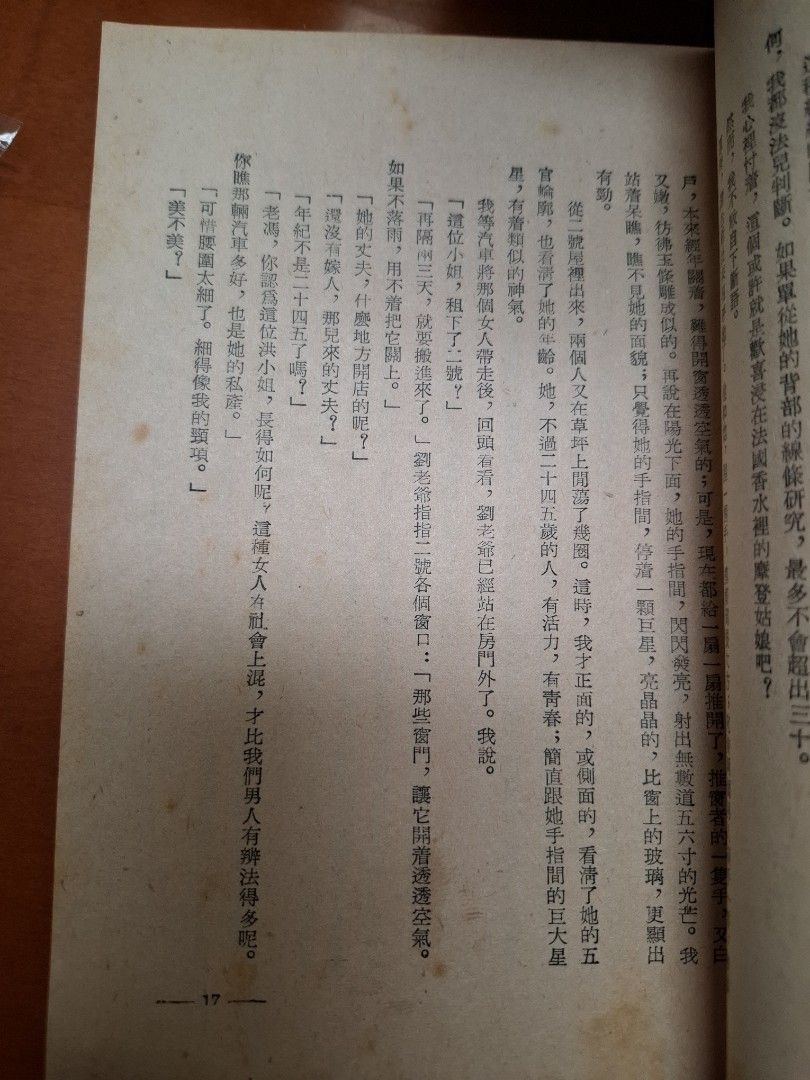 何，我都沒法兒判斷。如果單從她的背部的線條研究，最多不會超出三十。
我心裡忖着，這個或許就是歡喜浸在法國香水裡的摩登姑娘吧？
戶，本來經年關着，難得開窗透透空氣的；可是，現在都給一扇一扇推開了，推窗者的一隻手，又白
又嫩，彷彿玉條雕成似的。再說在陽光下面，她的手指間，閃閃發亮，射出無數道五六寸的光芒。我
站着呆瞧，瞧不見她的面貌；只覺得她的手指間，停着一顆巨星，亮晶晶的，比窗上的玻璃，更顯出
有勁。
從二號屋裡出來，兩個人又在草坪上閒蕩了幾圈。這時，我才正面的，或側面的，看清了她的五
官輪廓，也看清了她的年齡。她，不過二十四五歲的人，有活力，有靑春；簡直跟她手指間的巨大星
星，有着類似的神氣。
我等汽車將那個女人帶走後，回頭看看，劉老爺已經站在房門外了。我說。
「這位小姐，租下了二號？」
「再隔兩三天，就要搬進來了。」劉老爺指指二號各個窗口：「那些窗門，讓它開着透透空氣。
如果不落雨，用不着把它關上。」
「她的丈夫，什麽地方開店的呢？」
「還沒有嫁人，那兒來的丈夫？」
「年紀不是二十四五了嗎？」
「老馮，你認爲這位洪小姐，長得如何呢？這種女人在社會上混，才比我們男人有辦法得多呢。
你瞧那輛汽車多好，也是她的私產。」
「可惜腰圍太細了。細得像我的頸項。」
「美不美？」
17